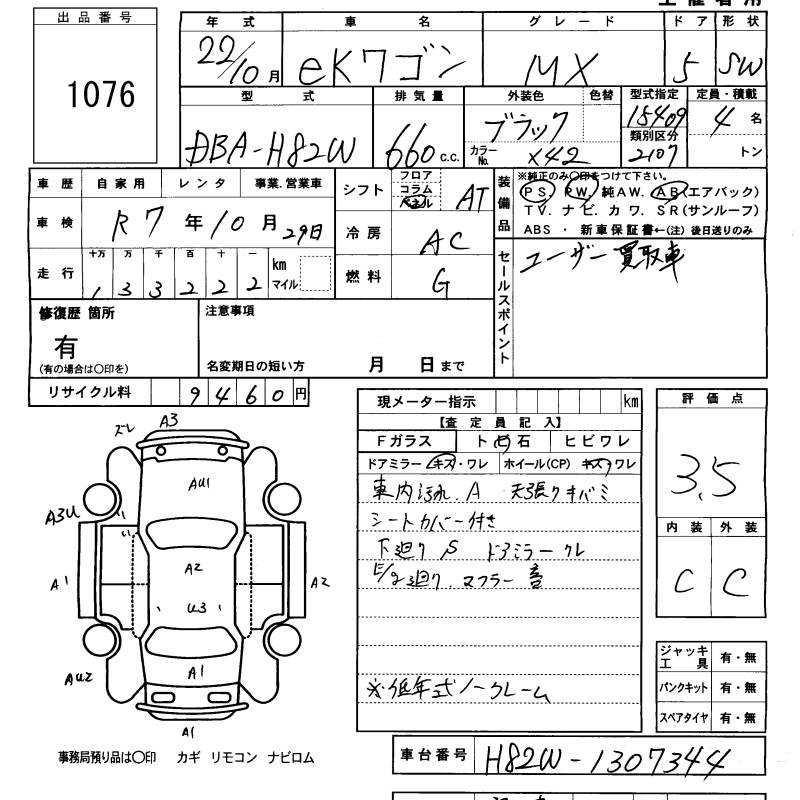 出品番号
1076
年式 車名 グレード ドア 形状
22/10月 eKワゴン MX 5 SW
型式 排気量 外装色 色替 型式指定 定員・積載
DBA-H82W 660 c.c. ブラック 15409 4名
カラーNo. X42 類別区分 2107 トン
車歴 自家用 レンタ 事業.営業車
車検 R7年10月29日
走行 十万 万 千 百 十 一 km
1 3 3 2 2 2 マイル
シフト フロア コラム パネル AT
冷房 AC
燃料 G
装備品 ※純正のみ〇印をつけて下さい。
PS PW 純AW. AB(エアバック)
TV. ナビ. カワ. SR(サンルーフ)
ABS ・ 新車保証書←(注) 後日送りのみ
セールスポイント ユーザー買取車
修復歴 箇所
有
(有の場合は〇印を)
注意事項
名変期日の短い方 月 日まで
リサイクル料 9460円
現メーター指示 km
【査定員記入】
Fガラス ト石 ヒビワレ
ドアミラー キズ・ワレ ホイール(CP) キズ・ワレ
車内汚れ.A 天張りキバミ
シートカバー付き
下廻りS ドアミラークレ
E/g廻り.マフラー音
※低年式ノークレーム
評価点
3.5
内装 外装
C C
ジャッキ工具 有・無
パンクキット 有・無
スペアタイヤ 有・無
ズレ A3
AU1
A3U
A2
A1 A2
U3
A1
AU2
A1
事務局預り品は〇印 カギ リモコン ナビロム
車台番号 H82W-1307344